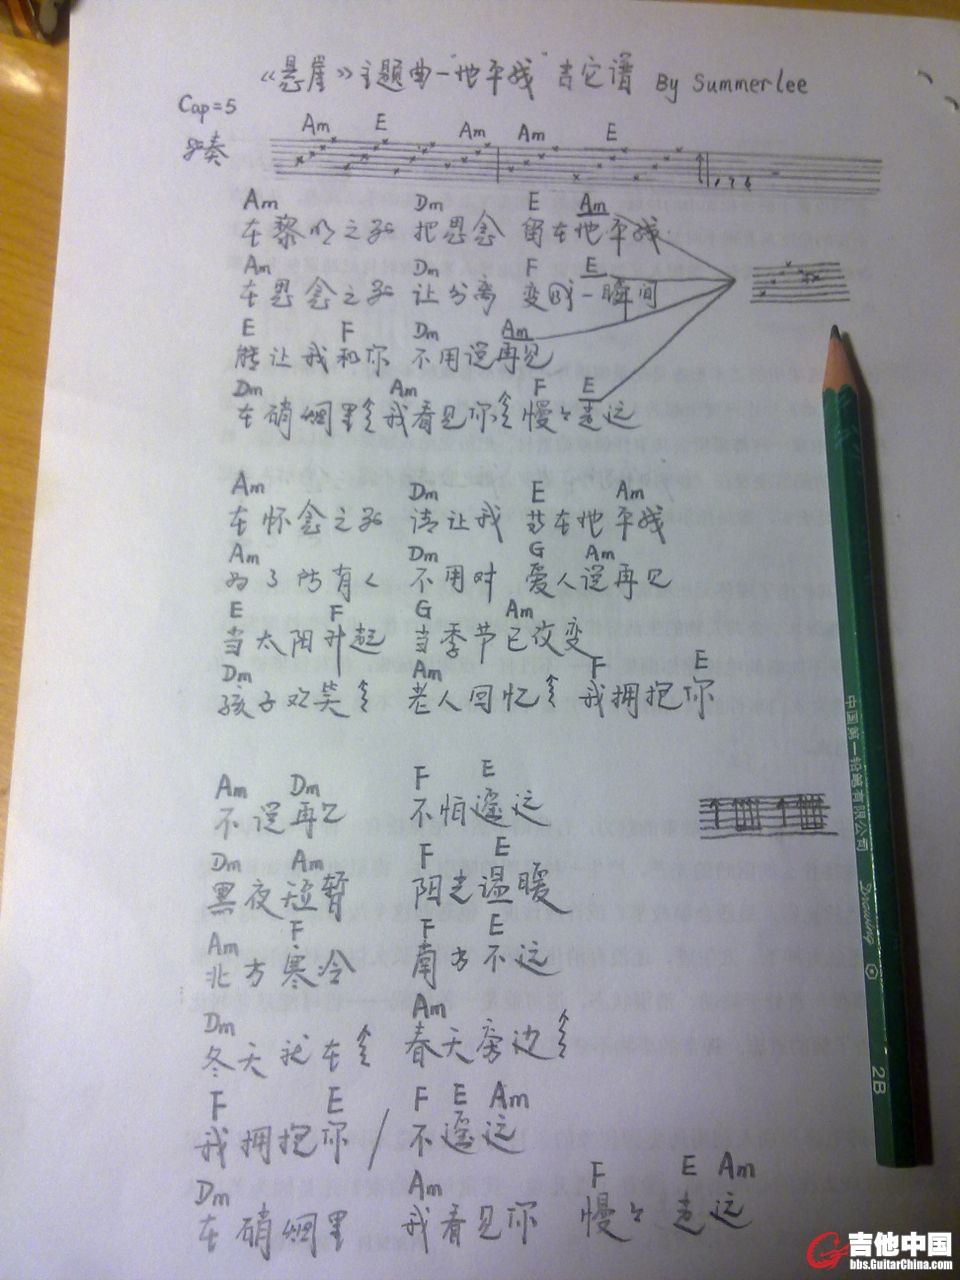 《悬崖》主题曲-"地平线"吉它谱 By Summerlee
Cap=5
Am E Am Am E
前奏
Am Dm E Am
在黎明之前 把思念 留在地平线
Am Dm F E
在思念之前 让分离 变成一瞬间
E F Dm Am
能让我和你 不用说再见
Dm Am F E
在硝烟里 我看见你 慢々走远
Am Dm E Am
在怀念之前 请让我 站在地平线
Am Dm G Am
为了所有人 不用对 爱人说再见
E F G Am
当太阳升起 当季节已改变
Dm Am F E
孩子欢笑 老人回忆 我拥抱你
Am Dm F E
不说再见 不怕遥远
Dm Am F E
黑夜短暂 阳光温暖
Am F F E
北方寒冷 南方不远
Dm Am
冬天就在 春天旁边
F E F E Am
我拥抱你 / 不遥远
Dm Am F E Am
在硝烟里 我看见你 慢々走远
中国第一铅笔有限公司 Drawing 2B
吉他中国
bbs.GuitarChina.com